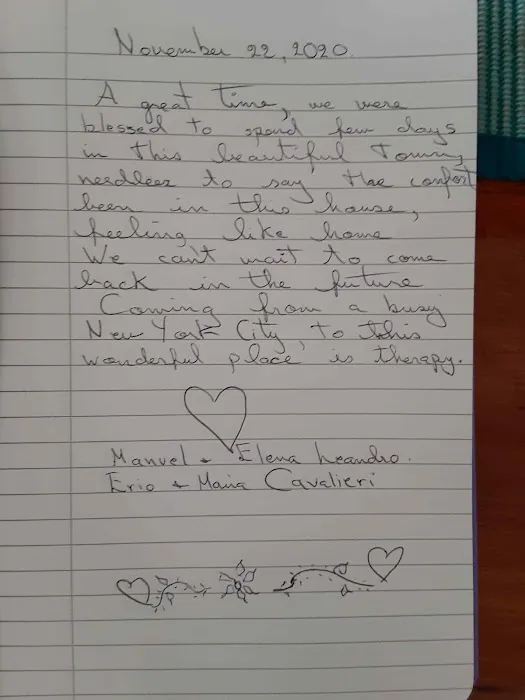 November 22, 2020.
A great time, we were
blessed to spend few days
in this beautiful Towny
needleez to say, the confort
been in this house,
feeling like home
We can't wait to come
back in the future
Coming from a busy
New York City, to this
wonderful place is therapy.
Manuel + Elena Leandro.
Erio + Maria Cavalieri